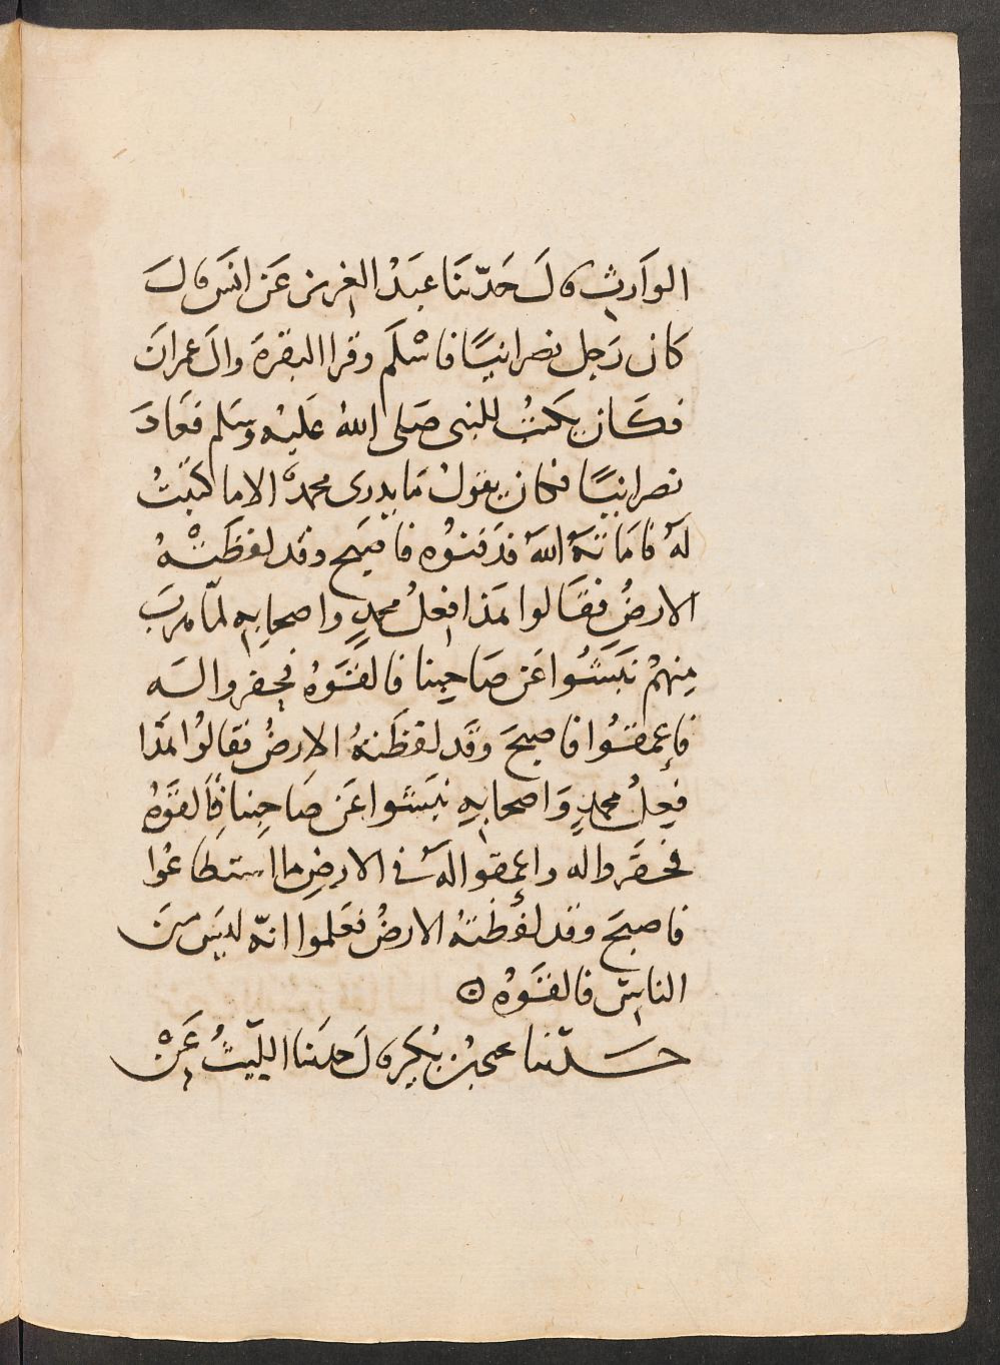 الوارث قال حَدّثنَا عبَدْ العزيز عَن انَس قالَ
كان رَجل نصرانيًا فاسْلَم وقرا البقرةَ والَ عمرانَ
فكَان يكتبُ للنبى صَلى اللهُ عَليْه وسَلم فعَادَ
نصرانيًا فكان يقولُ مَا يدرى محمدٌ الا ما كتبتُ
لهُ فامَاتهُ اللهُ فدَفنوُه فاصبَح وقد لفظَتْهُ
الارضُ فقَالوا هَذا فعلُ محمدٍ واصحابِه لمّا هربَ
مِنهمْ نبَشُوا عَن صَاحبِنا فالقَوهُ فحفروا لَه
فاعمقوُا فاصبحَ وقَد لفظَتهُ الارضُ فقالوُا هَذا
فِعلُ محمدٍ وَاصحابِهِ نبَشوا عَن صَاحِبنا فَالقوَهُ
فحفَروا له واعمقوا لهُ فى الارضِ ما استطاعُوا
فاصبحَ وقد لفَظتهُ الارضُ فعَلموا انّه ليَس منَ
الناسِ فالقَوهُ
حَدّثنا يحيى بن بُكير قالَ حدَثنا الليّثُ عَنْ